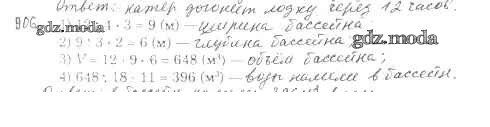 Ответ: катер догонет лодку через 12 часов.
906. 1) 12 : 4 · 3 = 9 (м) — ширина бассейна
gdz.moda
2) 9 : 3 · 2 = 6 (м) — глубина бассейна;
gdz.moda
3) V = 12 · 9 · 6 = 648 (м³) — объём бассейна;
4) 648 : 18 · 11 = 396 (м³) — воды налили в бассейн.